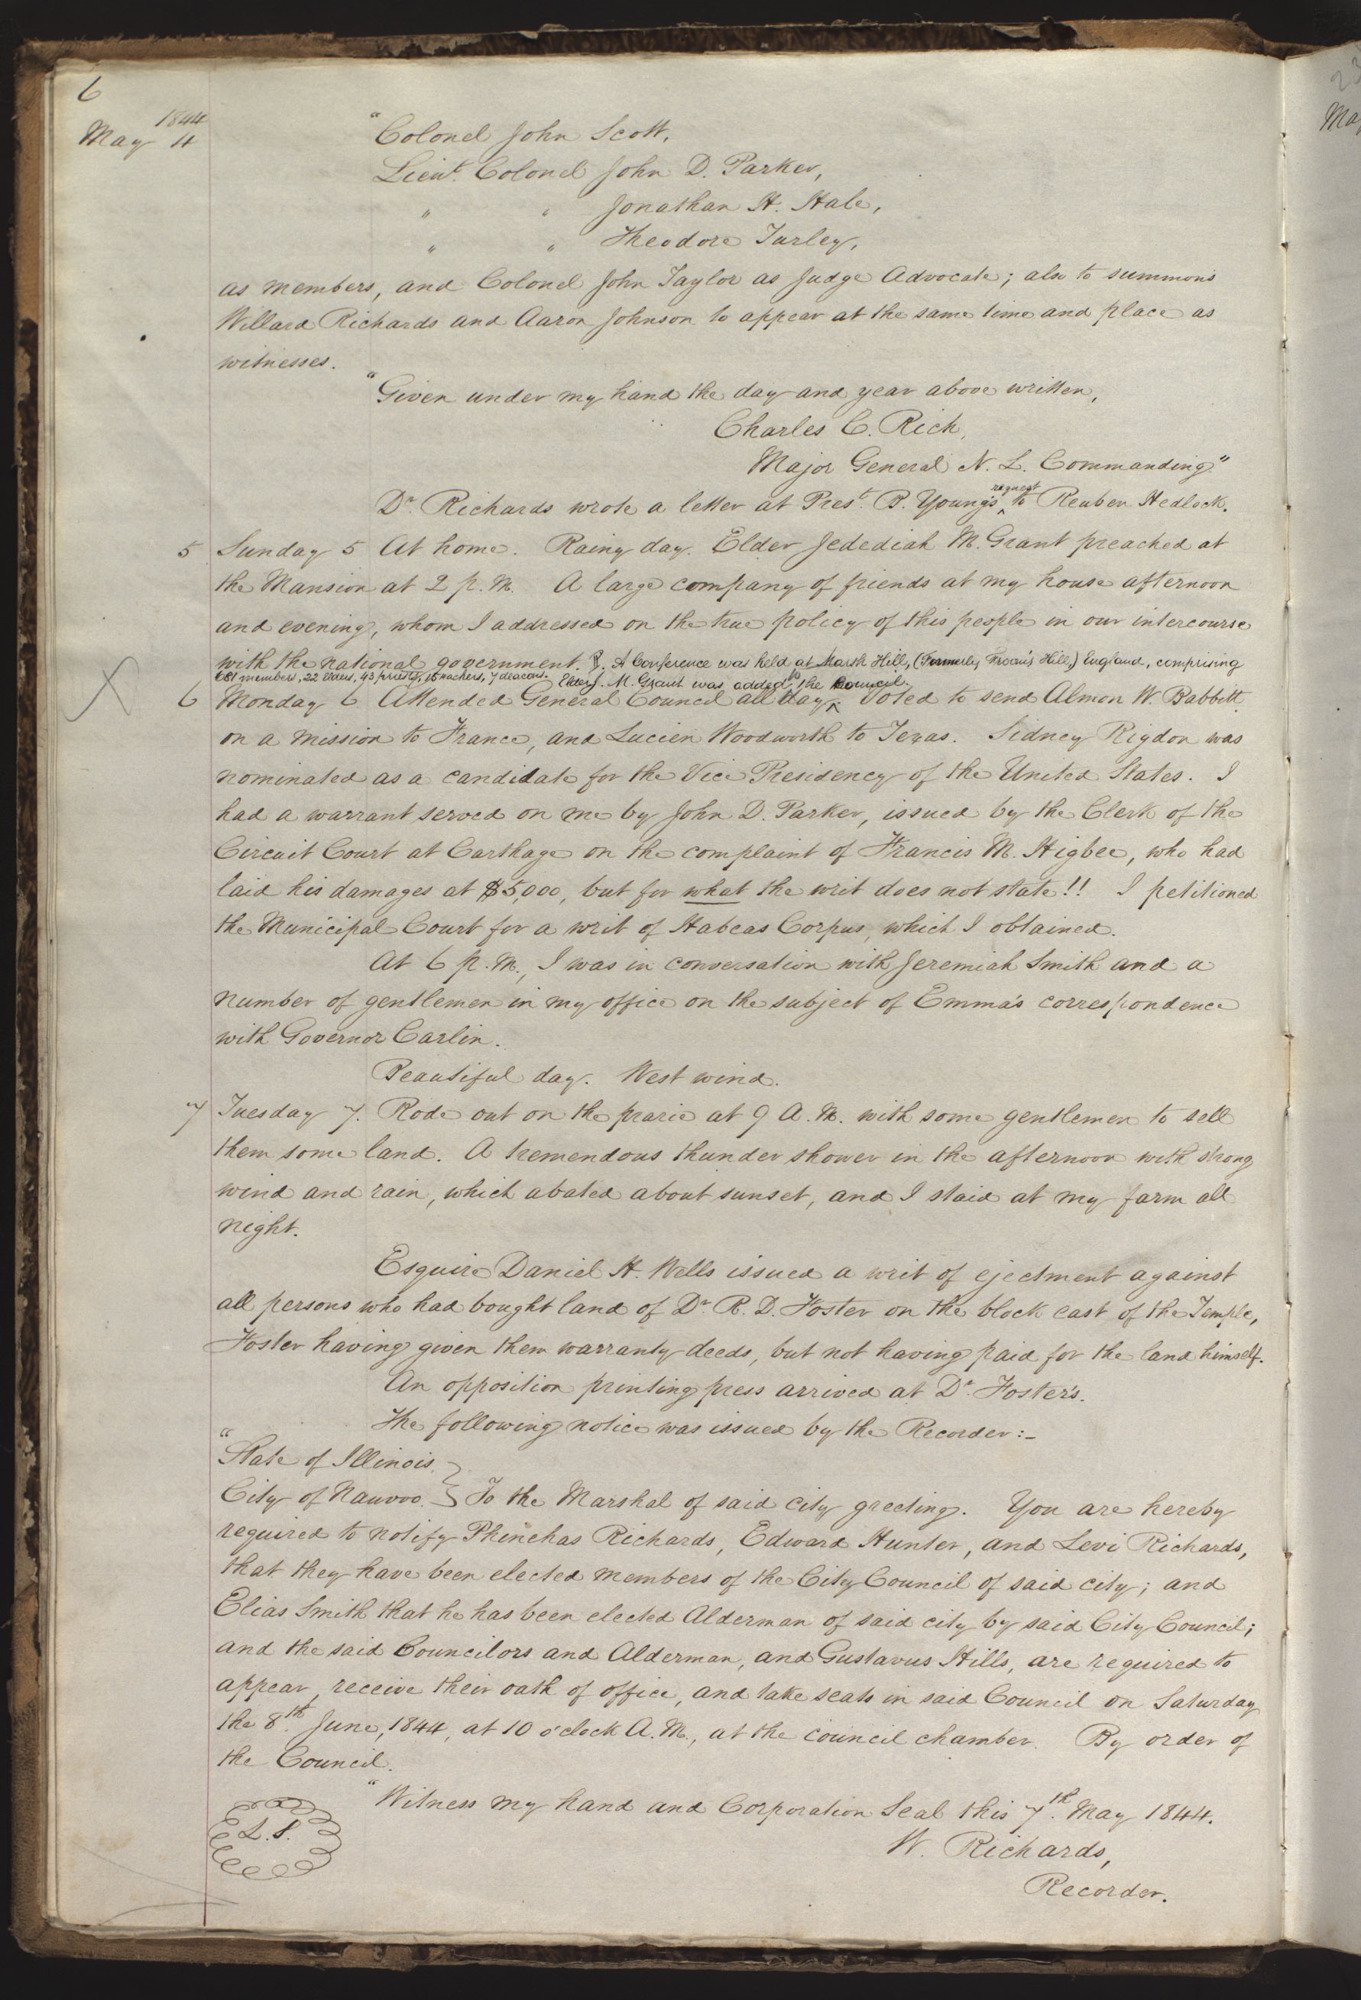 6
1844
May 4
"Colonel John Scott,
Lieut. Colonel John D. Parker,
" " Jonathan H. Hale,
" " Theodore Turley,
as members, and Colonel John Taylor as Judge Advocate; also to summons
Willard Richards and Aaron Johnson to appear at the same time and place as
witnesses.
"Given under my hand the day and year above written,
Charles C. Rich,
Major General N. L. Commanding."
request
Dr. Richards wrote a letter at Prest. B. Young's ^ to Reuben Hedlock.
5 Sunday 5 At home. Rainy day. Elder Jedediah M. Grant preached at
the Mansion at 2 p.m. A large company of friends at my house afternoon
and evening, whom I addressed on the true policy of this people in our intercourse
with the national government. A Conference was held at Marsh Hill, (formerly Froom's Hill,) England, comprising
681 members, 22 Elders, 43 priests, 16 teachers, 7 deacons. Elder J. M. Grant was added to the council.
6 Monday 6 Attended General Council all day ^. Voted to send Almon W. Babbitt
on a mission to France, and Lucien Woodworth to Texas. Sidney Rigdon was
nominated as a candidate for the Vice Presidency of the United States. I
had a warrant served on me by John D. Parker, issued by the Clerk of the
Circuit Court at Carthage on the complaint of Francis M. Higbee, who had
laid his damages at $5,000, but for what the writ does not state!! I petitioned
the Municipal Court for a writ of Habeas Corpus, which I obtained.
At 6 p.m., I was in conversation with Jeremiah Smith and a
number of gentlemen in my office on the subject of Emma's correspondence
with Governor Carlin.
Beautiful day. West wind.
7 Tuesday 7. Rode out on the prarie at 9 A.M. with some gentlemen to sell
them some land. A tremendous thunder shower in the afternoon with strong
wind and rain, which abated about sunset, and I staid at my farm all
night.
Esquire Daniel H. Wells issued a writ of ejectment against
all persons who had bought land of Dr. R. D. Foster on the block east of the Temple,
Foster having given them warranty deeds, but not having paid for the land himself.
An opposition printing press arrived at Dr. Foster's.
The following notice was issued by the Recorder:-
"State of Illinois.
City of Nauvoo. } To the Marshal of said city greeting. You are hereby
required to notify Phinehas Richards, Edward Hunter, and Levi Richards,
that they have been elected members of the City Council of said city; and
Elias Smith that he has been elected Alderman of said city by said City Council;
and the said Councilors and Alderman, and Gustavus Hills, are required to
appear, receive their oath of office, and take seats in said Council on Saturday
the 8th. June, 1844, at 10 o'clock A.M., at the council chamber. By order of
the Council.
"Witness my hand and Corporation Seal this 7th. May 1844.
L.S.
W. Richards,
Recorder.
23
May